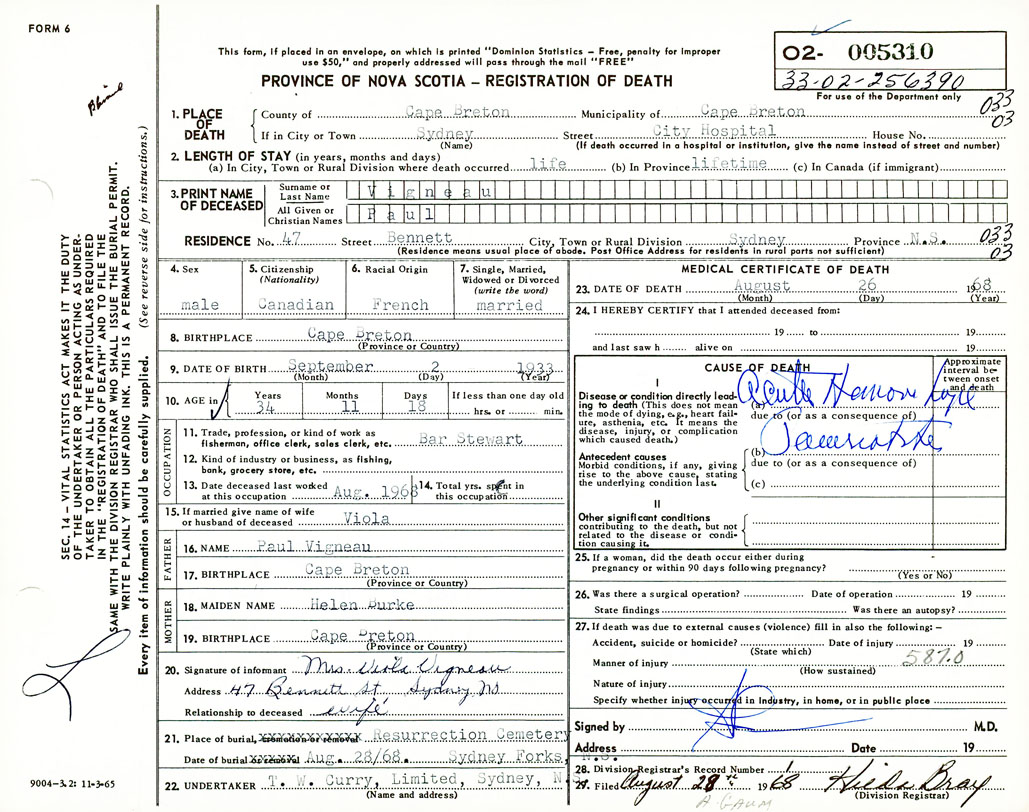 FORM 6
This form, if placed in an envelope, on which is printed "Dominion Statistics – Free, penalty for improper
use $50," and properly addressed will pass through the mail "FREE"
PROVINCE OF NOVA SCOTIA – REGISTRATION OF DEATH
02- 005310
33-02-256390
For use of the Department only
033
03
SEC. 14 – VITAL STATISTICS ACT MAKES IT THE DUTY
OF THE UNDERTAKER OR PERSON ACTING AS UNDER-
TAKER TO OBTAIN ALL THE PARTICULARS REQUIRED
IN THE "REGISTRATION OF DEATH" AND TO FILE THE
SAME WITH THE DIVISION REGISTRAR WHO SHALL ISSUE THE BURIAL PERMIT.
WRITE PLAINLY WITH UNFADING INK. THIS IS A PERMANENT RECORD.
Every item of information should be carefully supplied. (See reverse side for instructions.)
1. PLACE OF DEATH
County of Cape Breton Municipality of Cape Breton
If in City or Town Sydney Street City Hospital House No.
(Name) (If death occurred in a hospital or institution, give the name instead of street and number)
2. LENGTH OF STAY (in years, months and days)
(a) In City, Town or Rural Division where death occurred life (b) In Province lifetime (c) In Canada (if immigrant)
3. PRINT NAME OF DECEASED
Surname or Last Name Vigneau
All Given or Christian Names Paul
RESIDENCE No. 47 Street Bennett City, Town or Rural Division Sydney Province N.S.
(Residence means usual place of abode. Post Office Address for residents in rural parts not sufficient)
033
03
4. Sex
male
5. Citizenship
(Nationality)
Canadian
6. Racial Origin
French
7. Single, Married,
Widowed or Divorced
(write the word)
married
8. BIRTHPLACE Cape Breton
(Province or Country)
9. DATE OF BIRTH September 2 1933
(Month) (Day) (Year)
10. AGE in
Years Months Days If less than one day old
34 11 18 hrs. or min.
OCCUPATION
11. Trade, profession, or kind of work as
fisherman, office clerk, sales clerk, etc. Bar Stewart
12. Kind of industry or business, as fishing,
bank, grocery store, etc.
13. Date deceased last worked
at this occupation Aug. 1968
14. Total yrs. spent in
this occupation
15. If married give name of wife
or husband of deceased Viola
FATHER
16. NAME Paul Vigneau
17. BIRTHPLACE Cape Breton
(Province or Country)
MOTHER
18. MAIDEN NAME Helen Burke
19. BIRTHPLACE Cape Breton
(Province or Country)
20. Signature of informant Mrs. Viola Vigneau
Address 47 Bennett St, Sydney, NS
Relationship to deceased wife
21. Place of burial, cremation or removal Resurrection Cemetery
Date of burial Aug. 28/68. Sydney Forks, N.S.
22. UNDERTAKER T. W. Curry, Limited, Sydney, N.
(Name and address)
9004–3.2: 11-3-65
MEDICAL CERTIFICATE OF DEATH
23. DATE OF DEATH August 26 1968
(Month) (Day) (Year)
24. I HEREBY CERTIFY that I attended deceased from:
19 to 19
and last saw h alive on 19
CAUSE OF DEATH
Approximate interval between onset and death
I
Disease or condition directly lead-
ing to death (This does not mean
the mode of dying, e.g., heart fail-
ure, asthenia, etc. It means the
disease, injury, or complication
which caused death.)
(a) Acute
due to (or as a consequence of)
Antecedent causes
Morbid conditions, if any, giving
rise to the above cause, stating
the underlying condition last.
(b)
due to (or as a consequence of)
(c)
II
Other significant conditions
contributing to the death, but not
related to the disease or condi-
tion causing it.
25. If a woman, did the death occur either during
pregnancy or within 90 days following pregnancy?
(Yes or No)
26. Was there a surgical operation? Date of operation 19
State findings Was there an autopsy?
27. If death was due to external causes (violence) fill in also the following: –
Accident, suicide or homicide? Date of injury 19
(State which)
5870
Manner of injury
(How sustained)
Nature of injury
Specify whether injury occurred in industry, in home, or in public place
Signed by M.D.
Address Date 19
28. Division Registrar's Record Number
29. Filed August 28th 1968 Hilda Bray
(Division Registrar)